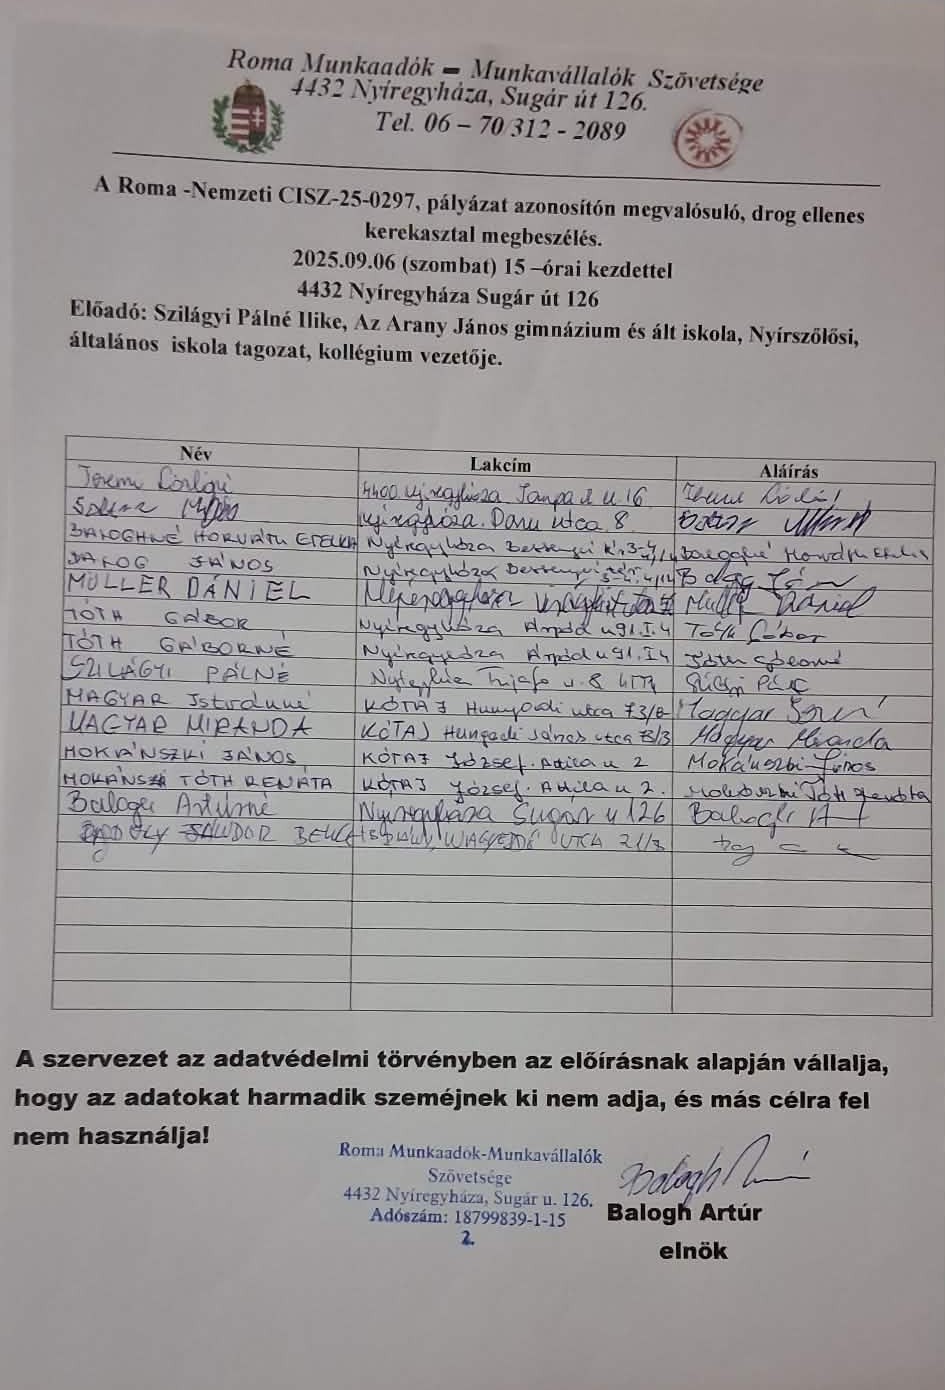 Roma Munkaadók – Munkavállalók Szövetsége
4432 Nyíregyháza, Sugár út 126.
Tel. 06 – 70/312 - 2089
A Roma -Nemzeti CISZ-25-0297, pályázat azonosítón megvalósuló, drog ellenes
kerekasztal megbeszélés.
2025.09.06 (szombat) 15 –órai kezdettel
4432 Nyíregyháza Sugár út 126
Előadó: Szilágyi Pálné Ilike, Az Arany János gimnázium és ált iskola, Nyírszőlősi,
általános iskola tagozat, kollégium vezetője.
Név Lakcím Aláírás
4400 u 16
Daru utca 8
BALOGHNÉ HORVÁTH ETELKA Nyíregyháza
BALOG JÁNOS Nyíregyháza
MÜLLER DÁNIEL
TÓTH GÁBOR Nyíregyháza Árpád u 91. I. 4 Tóth Gábor
TÓTH GÁBORNÉ Nyíregyháza Árpád u 91. I. 4 Tóth Gáborné
SZILÁGYI PÁLNÉ u. 8
MAGYAR Istvánné KÓTAJ Hunyadi utca 73/B Magyar
MAGYAR MIRANDA KÓTAJ Hunyadi János utca Magyar Miranda
MOKÁNSZKI JÁNOS KÓTAJ József. Attila u 2 Mokánszki János
TÓTH RENÁTA KÓTAJ József. Attila u 2.
Balogh Artúrné Nyíregyháza Sugár u 126 Balogh
SÁNDOR UTCA
A szervezet az adatvédelmi törvényben az előírásnak alapján vállalja,
hogy az adatokat harmadik személnek ki nem adja, és más célra fel
nem használja!
Roma Munkaadók-Munkavállalók
Szövetsége
4432 Nyíregyháza, Sugár u. 126.
Adószám: 18799839-1-15
2.
Balogh
Balogh Artúr
elnök